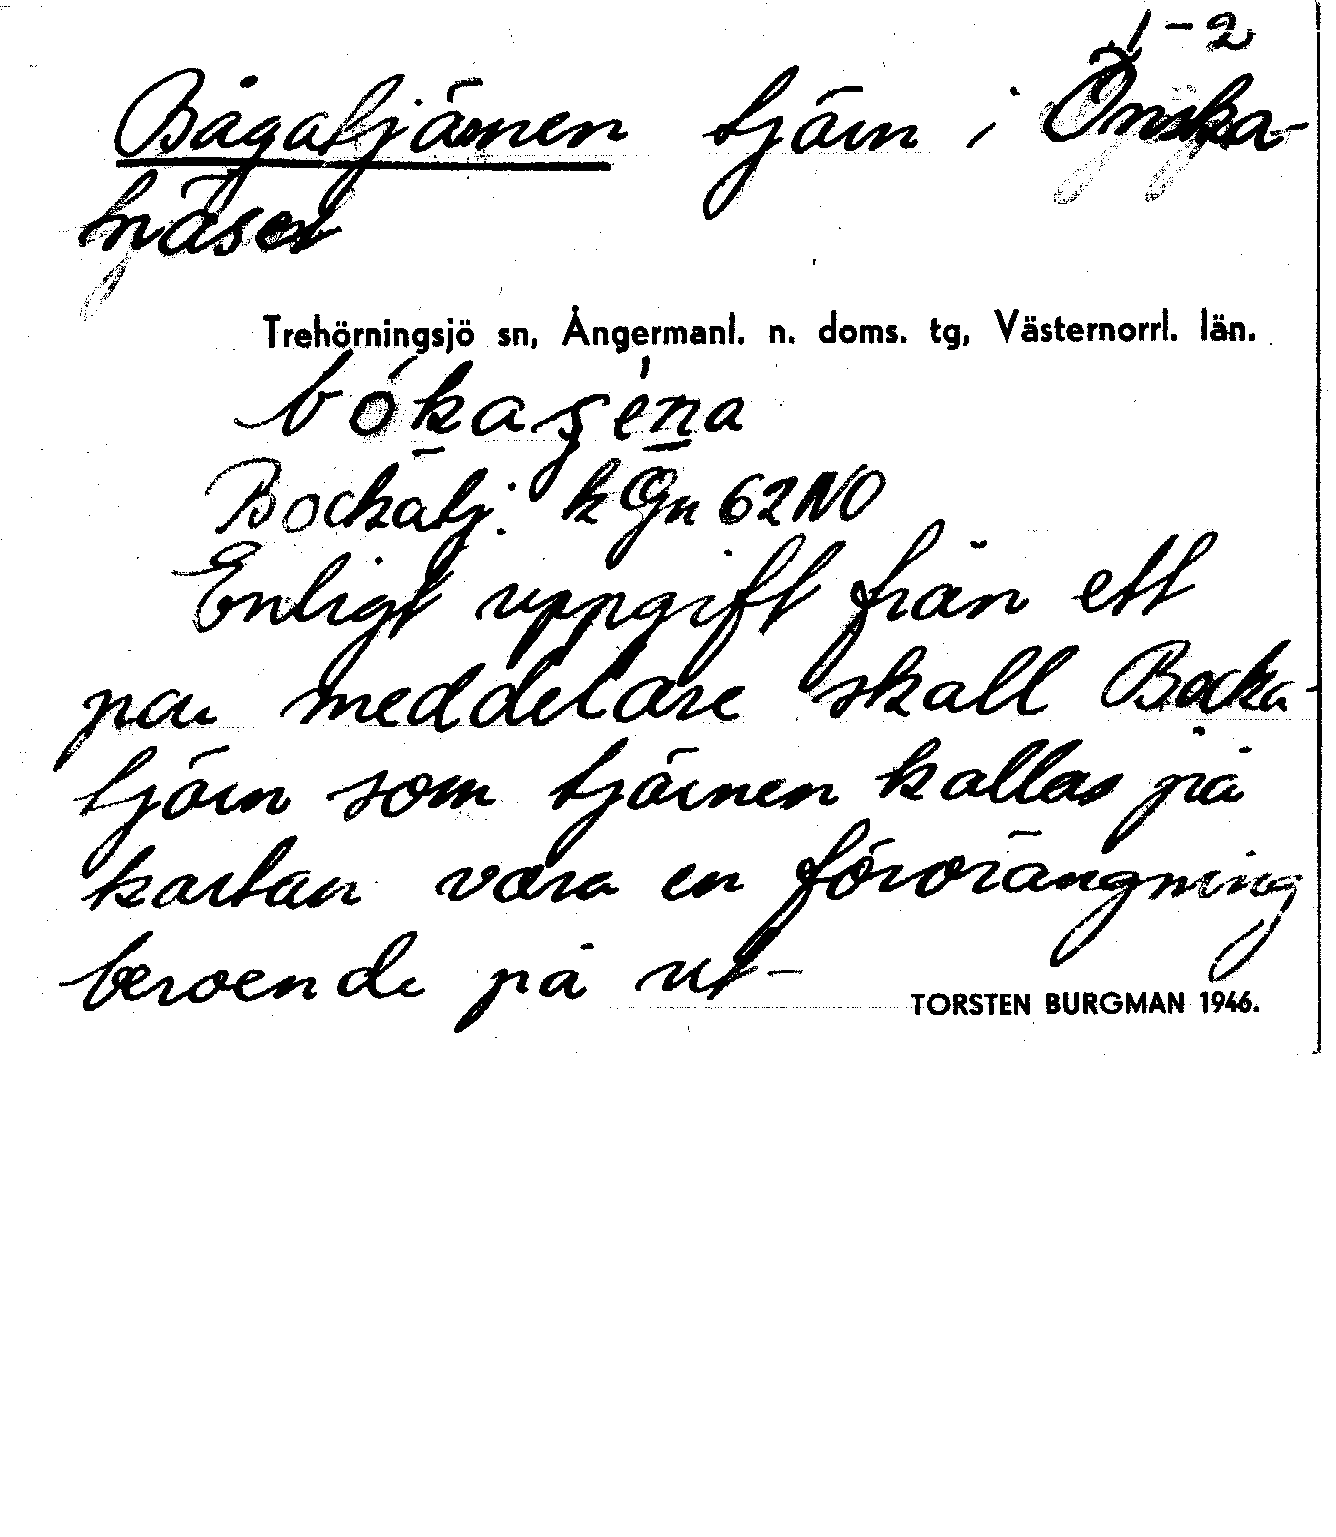 1-2
Bågatjärnen tjärn i Önska-
näset
Trehörningsjö sn, Ångermanl. n. doms. tg, Västernorrl. län.
Bockatj. k Gn 62 NO
Enligt uppgift från ett
par meddelare skall Bocka-
tjärn som tjärnen kallas på
kartan vara en förvrängning
beroende på ut-
TORSTEN BURGMAN 1946.